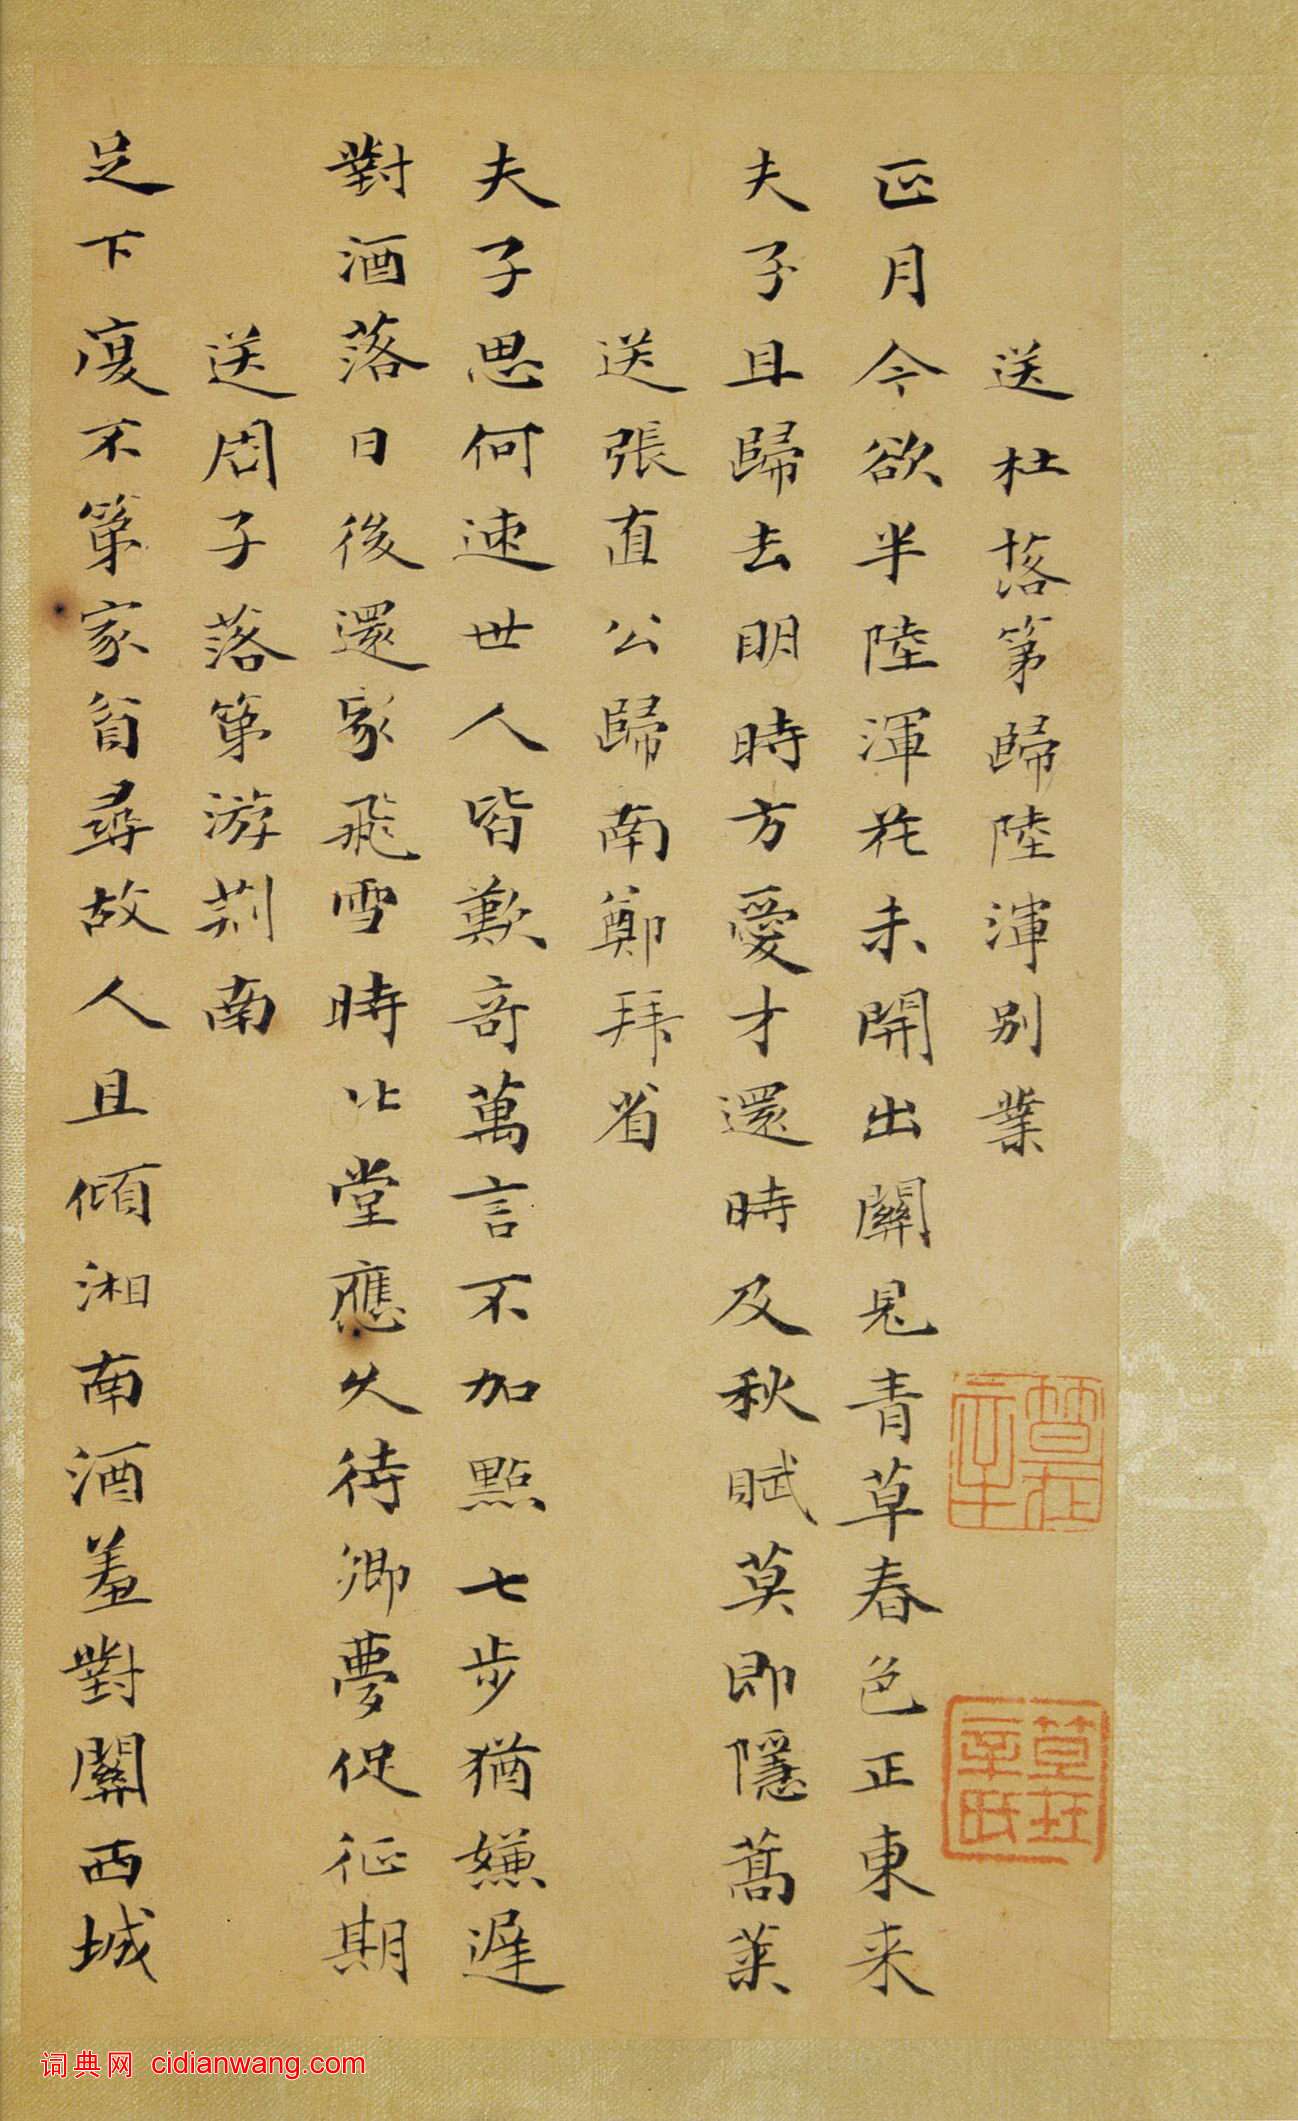 送杜落第歸陸渾別業
正月今欲半陸渾花未開出關見青草春色正東来
夫子且歸去明時方愛才還時及秋賦莫即隱蒿萊
送張直公歸南鄭拜省
夫子思何速世人皆歎奇萬言不加點七步猶嫌遲
對酒落日後還家飛雪時北堂應久待鄉夢促征期
送周子落第游荆南
足下復不第家貧尋故人且傾湘南酒羞對關西塵
词典网 cidianwang.com